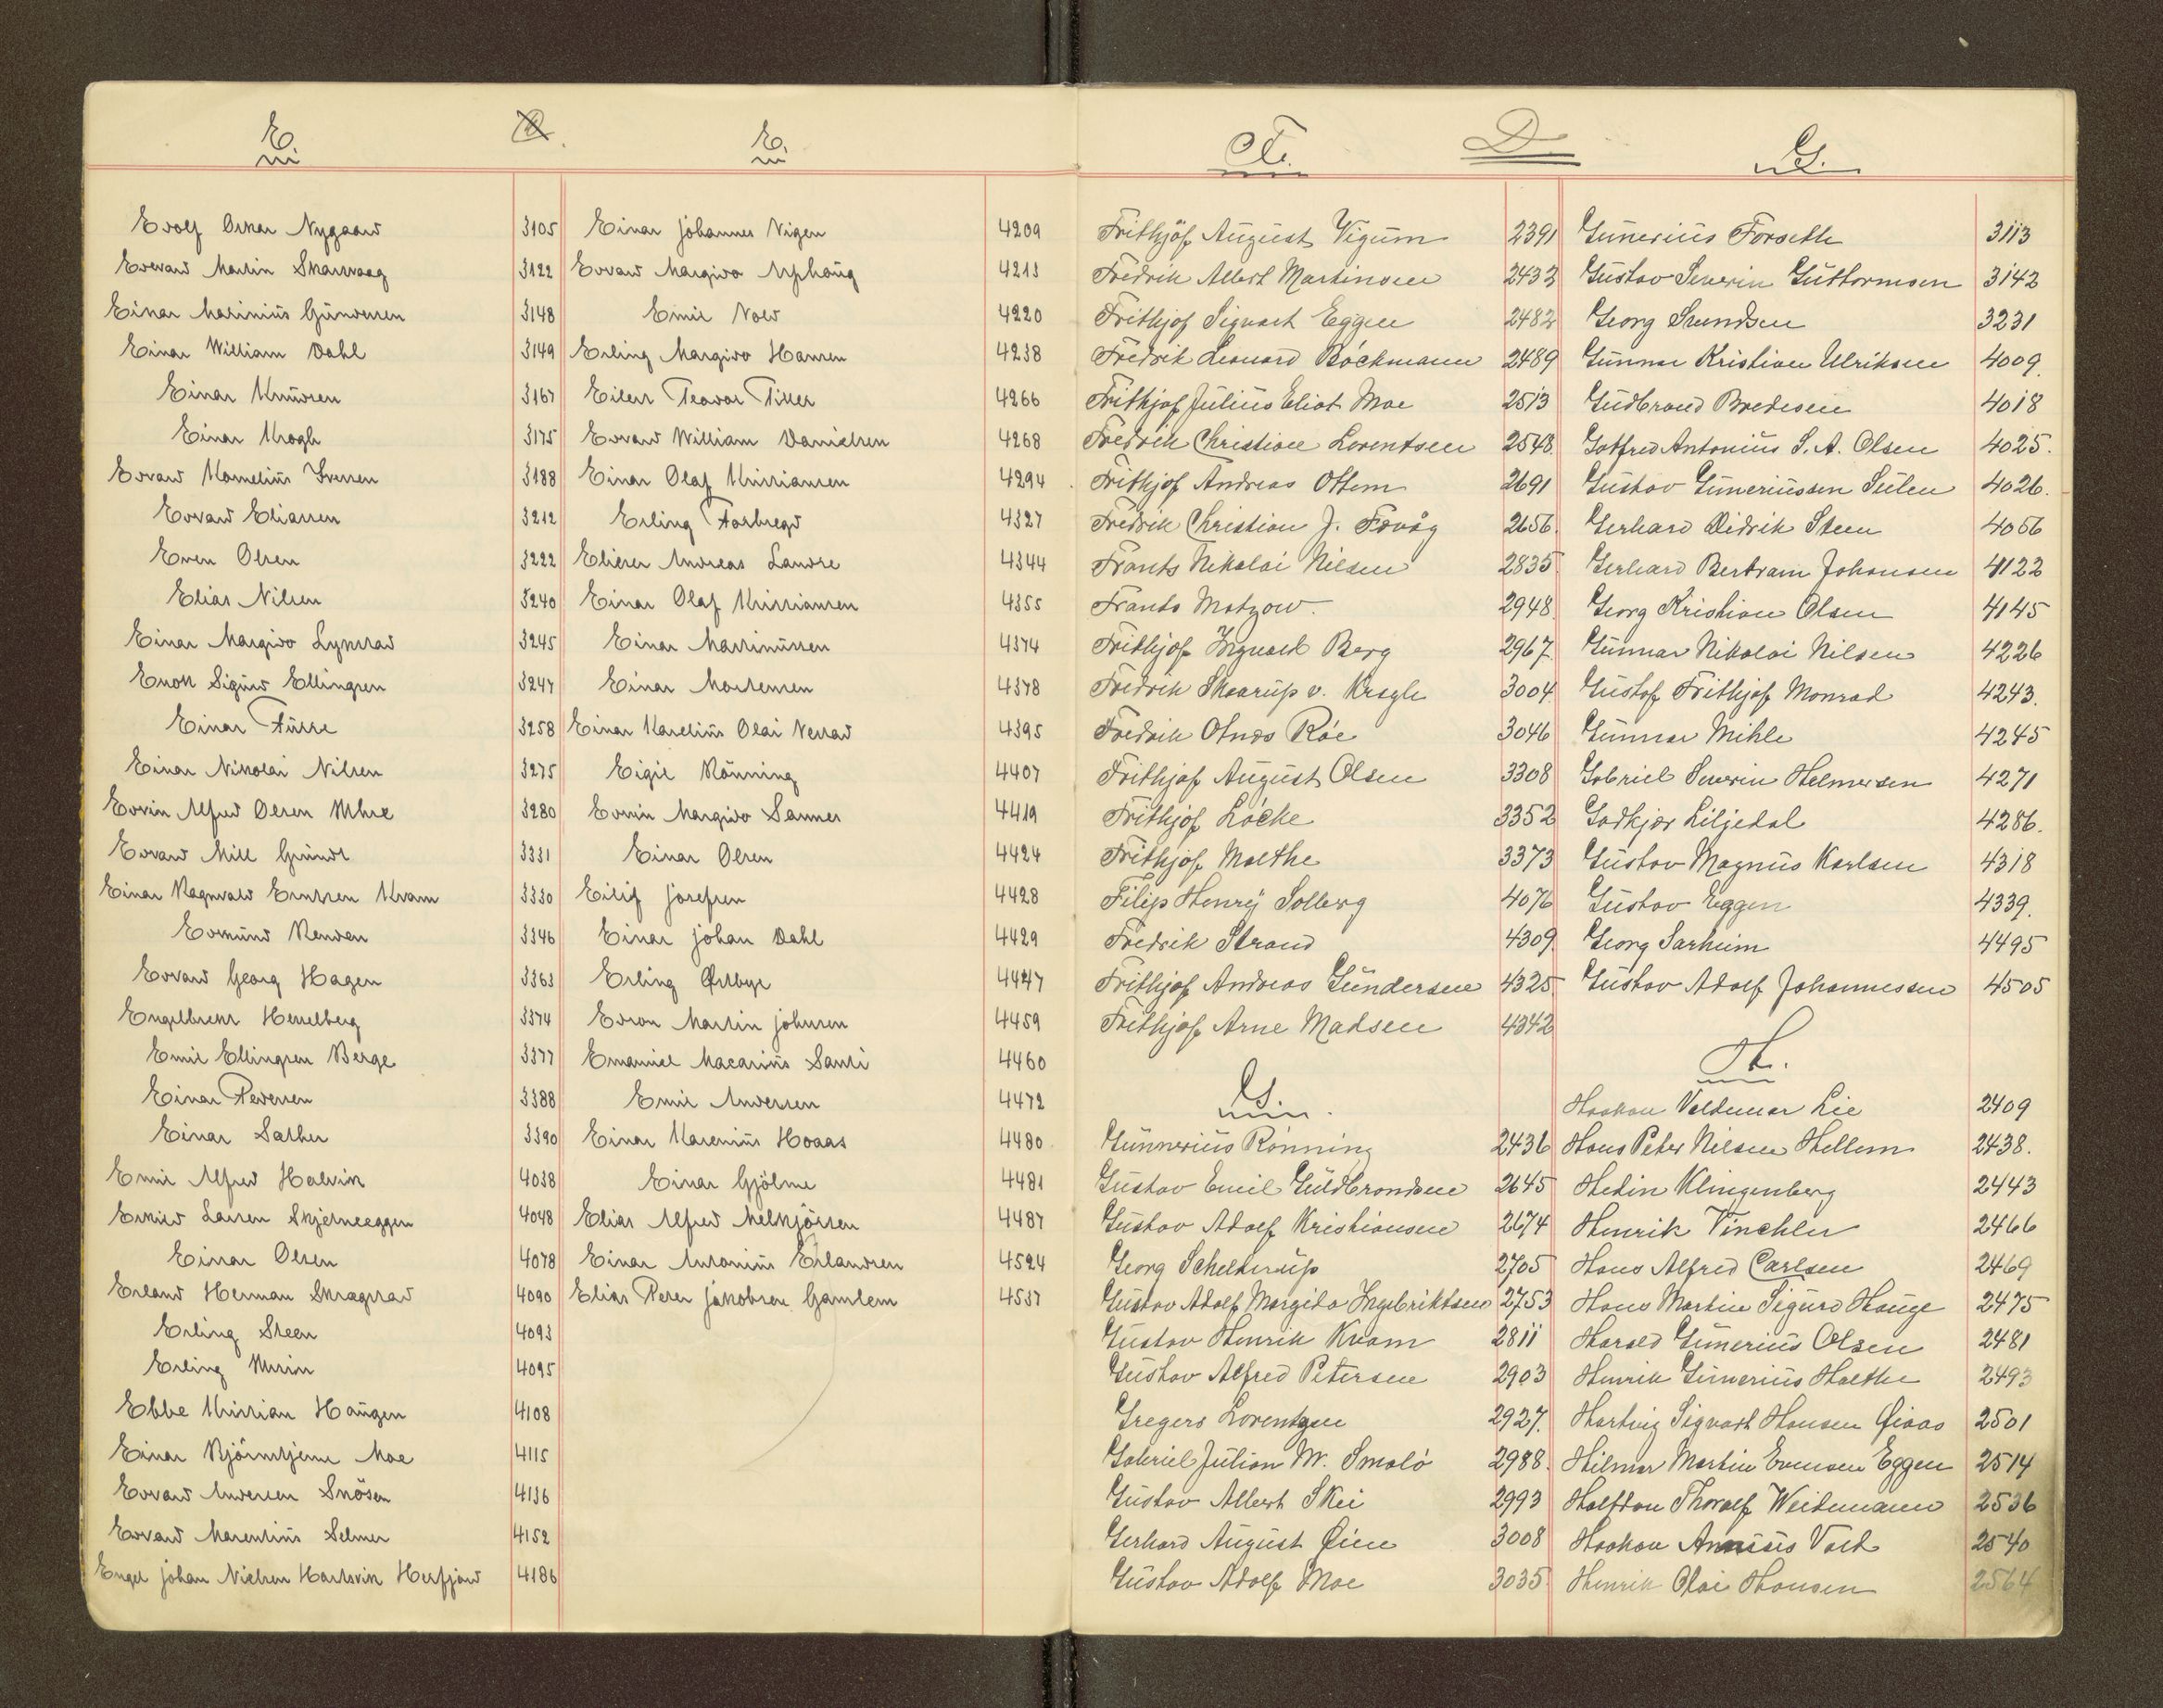 E.
Edolf Oskar Nygaard 3105
Edevard Martin Skarvaag 3122
Einar Marinius Gundersen 3148
Einar William Dahl 3149
Einar Knudsen 3167
Einar Krogh 3175
Edvard Kornelius Iversen 3188
Edvard Eliassen 3212
Even Olsen 3222
Elias Nilsen 3240
Einar Margido Lykstad 3245
Enok Sigurd Ellingsen 3247
Einar Furre 3258
Einar Nikolai Nilsen 3275
Edvin Alfred Olsen Uhre 3280
Edvard Mill Grundt 3331
Einar Ragnvald Erntsen Kvam 3330
Edmund Renden 3346
Edvard Georg Hagen 3363
Engelbrekt Hesselberg 3374
Emil Ellingsen Berge 3377
Einar Pedersen 3388
Einar Sather 3390
Emil Alfred Halvik 4038
Eskild Larsen Skjelneeggen 4048
Einar Olsen 4078
Erland Herman Skragstad 4090
Erling Steen 4093
Erling Ursin 4095
Ebbe Kristian Haugen 4108
Einar Björnstjerne Moe 4115
Edvard Andersen Snösen 4136
Edvard Marentius Selmer 4152
Engel Johan Nielsen Hartvik Hesfjord 4186
E.
Einar Johannes Vigen 4209
Edvard Margido Ryphaug 4213
Emil Vold 4220
Erling Margido Hansen 4238
Eilert Teodor Tiller 4266
Edvard William Danielsen 4268
Einar Olaf Kristiansen 4294
Erling Forbregd 4327
Elieser Andreas Landre 4344
Einar Olaf Kristiansen 4355
Einar Martinussen 4374
Einar Mortensen 4378
Einar Karelius Olai Nestad 4395
Eigil Rönning 4407
Edvin Margido Sannes 4419
Einar Olsen 4424
Eilif Josefsen 4428
Einar Johan Dahl 4429
Erling Østbye 4447
Edvon Martin Johnsen 4459
Emanuel Macarius Santi 4460
Emil Andersen 4472
Einar Karenius Hoaas 4480
Einar Gjölme 4481
Elias Alfred Melkjörsen 4487
Einar Antonius Erlandsen 4524
Elias Peter Jakobsen Gamlem 4537
F.
Frithjöf August Vigum 2391
Fredrik Albert Martinsen 2432
Frithjof Sigvart Eggen 2482
Fredrik Leonard Böckmann 2489
Frithjof Julius Eliot Moe 2513
Fredrik Christian Lorentsen 2548
Frithjof Andreas Ottem 2691
Fredrik Christian J. Fævåg 2656.
Frants Nikolai Nilsen 2835
Frants Matzow. 2948
Frithjof Ingvard Berg 2967
Fredrik Skaarup v. Krogh 3004
Fredrik Otnæs Röe 3046
Frithjof August Olsen 3308
Frithjof Löcke 3352
Frithjof Malthe 3373
Filip Henrij Solberg 4076
Fredrik Strand 4309
Frithjof Andreas Gundersen 4325
Frithjof Arne Madsen 4342
G.
Gunnerius Rönning 2436
Gustav Emil Guldbrandsen 2645
Gustav Adolf Kristiansen 2674
Georg Schelderup 2705
Gustav Adolf Margido Ingebriktsen 2753
Gustav Henrik Kvam 2811
Gustav Alfred Petersen 2903
Gregers Lorentzen 2927.
Gabriel Julian M. Smalö 2988.
Gustav Albert Skei 2993
Gerhard August Øien 3008
Gustav Adolf Moe 3035
D.
G.
Gunerius Forseth 3113
Gustav Severin Guttormsen 3142
Georg Svendsen 3231
Gunnar Kristian Ulriksen 4009.
Gudbrand Bredesen 4018
Gotfred Antonius S. A. Olsen 4025.
Gustav Guneriussen Sulen 4026.
Gerhard Didrik Steen 4056
Gerhard Bertram Johansen 4122
Georg Kristian Olsen 4145
Gunnar Nikolai Nilsen 4226
Gustaf Frithjof Monrad 4243.
Gunnar Mihle 4245
Gabriel Severin Helmersen 4271
Godkjær Liljedal 4286.
Gustav Magnus Karlsen 4318
Gustav Eggen 4339.
Georg Sarheim 4495
Gustav Adolf Johannessen 4505
H.
Haakon Valdemar Lie 2409
Hans Peter Nilsen Hellem 2438.
Hedin Klingenberg 2443
Henrik Vinckler 2466
Hans Alfred Carlsen 2469
Hans Martin Sigurd Hauge 2475
Harald Gunerius Olsen 2481
Henrik Gunerius Holthe 2493
Hartvig Sigvart Hansen Øiaas 2501
Hilmar Martin Evensen Eggen 2514
Halfdan Thoralf Weidemann 2536
Haakon Annæus Vold 2540
Henrik Olai Hansen 2564